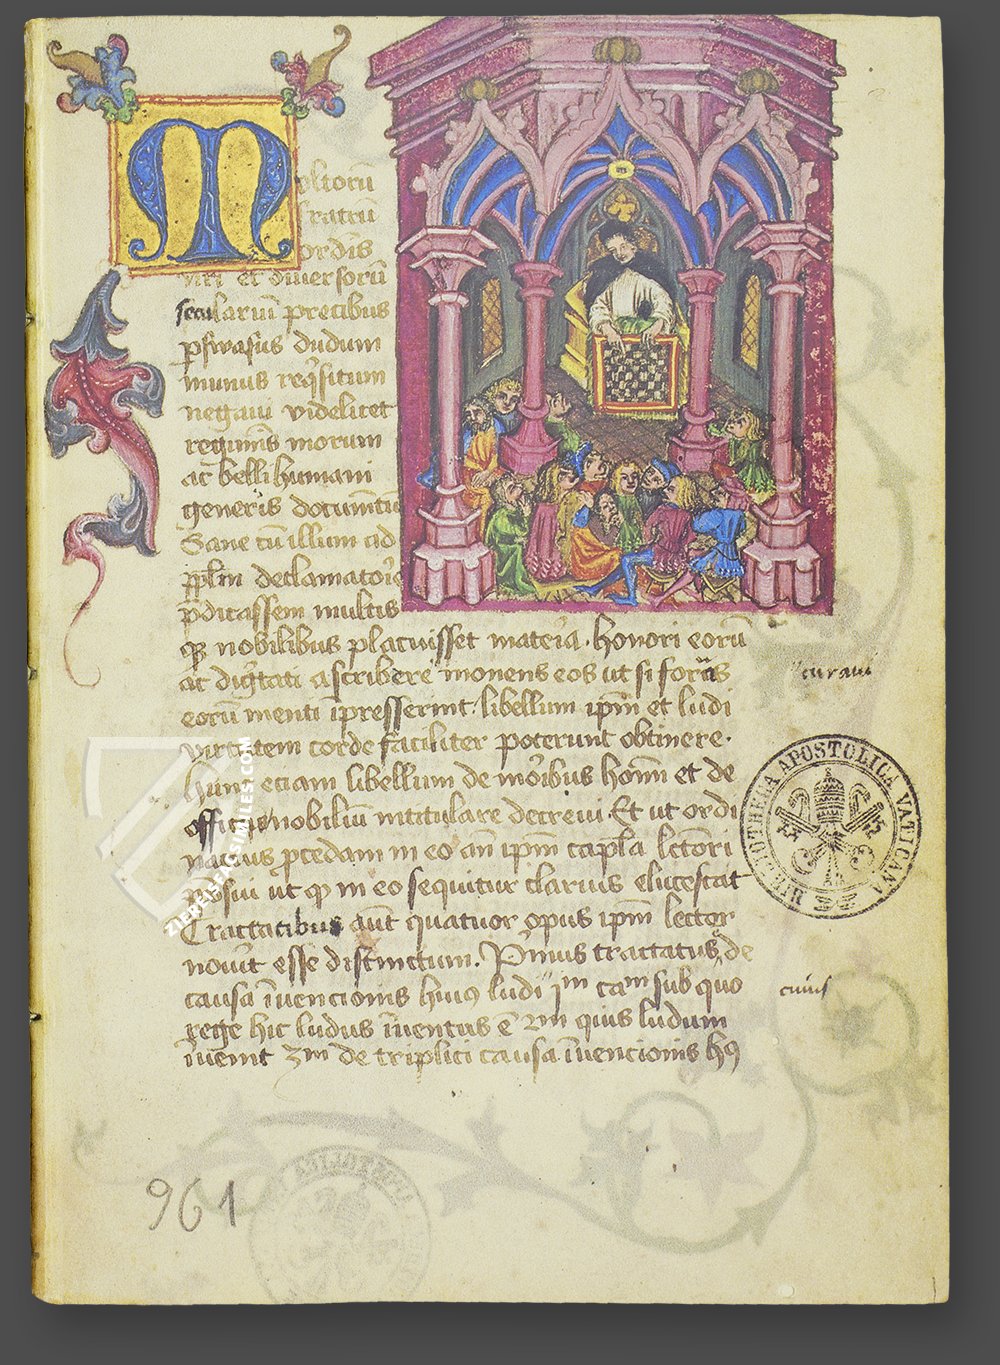 M
ultoru
fratru
ordis
nri et diversoru
secularium precibus
pswasus dudum
munus reqsitum
negaui videlicet
regiminis morum
ac belli humani
generis documentu
Sane cu illum ad
pplm declamatorie
pdicassem multis
qz nobilibus placuisset materia. honori eoru
ac dignitati ascribere monens eos ut si formas
eoru menti ipresserint. libellum ipm et ludi
virtutem corde faciliter poterunt obtinere.
hunc etiam libellum de moribus hominum et de
officiis nobiliu intitulare decreui. Et ut ordi
nacius procedam in eo an ipm capla lectori
possui ut qd in eo sequitur clarius elucescat
Tractatibus aut quatuor opus ipm lector
nouit esse distinctum. Primus tractatus de
causa iuencionis huius ludi im cam sub quo
rege hic ludus iuentus e 2m quis ludum
inuenit 3m de triplici causa iuencionis hus
curaui
cuius
BIBLIOTHECA APOSTOLICA VATICANA
961
ZIEREIS FACSIMILES.COM